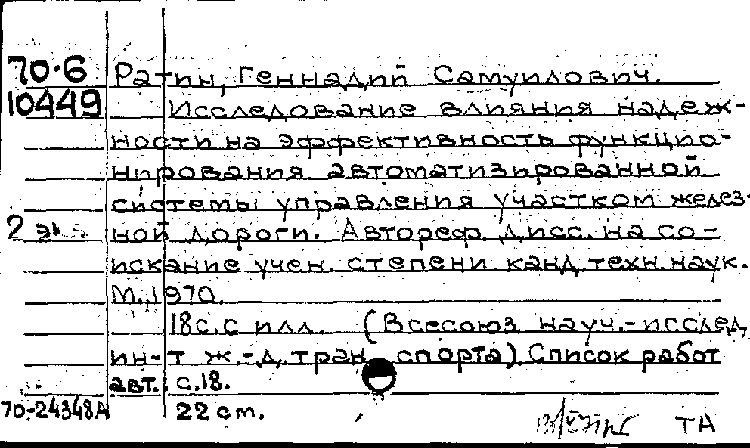 70-6 Ратин, Геннадий Самуилович.
10449 Исследование влияния надеж-
ности на эффективность функцио-
нирования автоматизированной
системы управления участком желез-
2 эк. ной дороги. Автореф. дисс. на со-
искание учен. степени канд. техн. наук.
М., 1970.
18 с. с илл. (Всесоюз науч.-исслед
ин-т ж.-д. тран спорта). Список работ
авт.: с. 18.
70-24348А 22 см. ТА